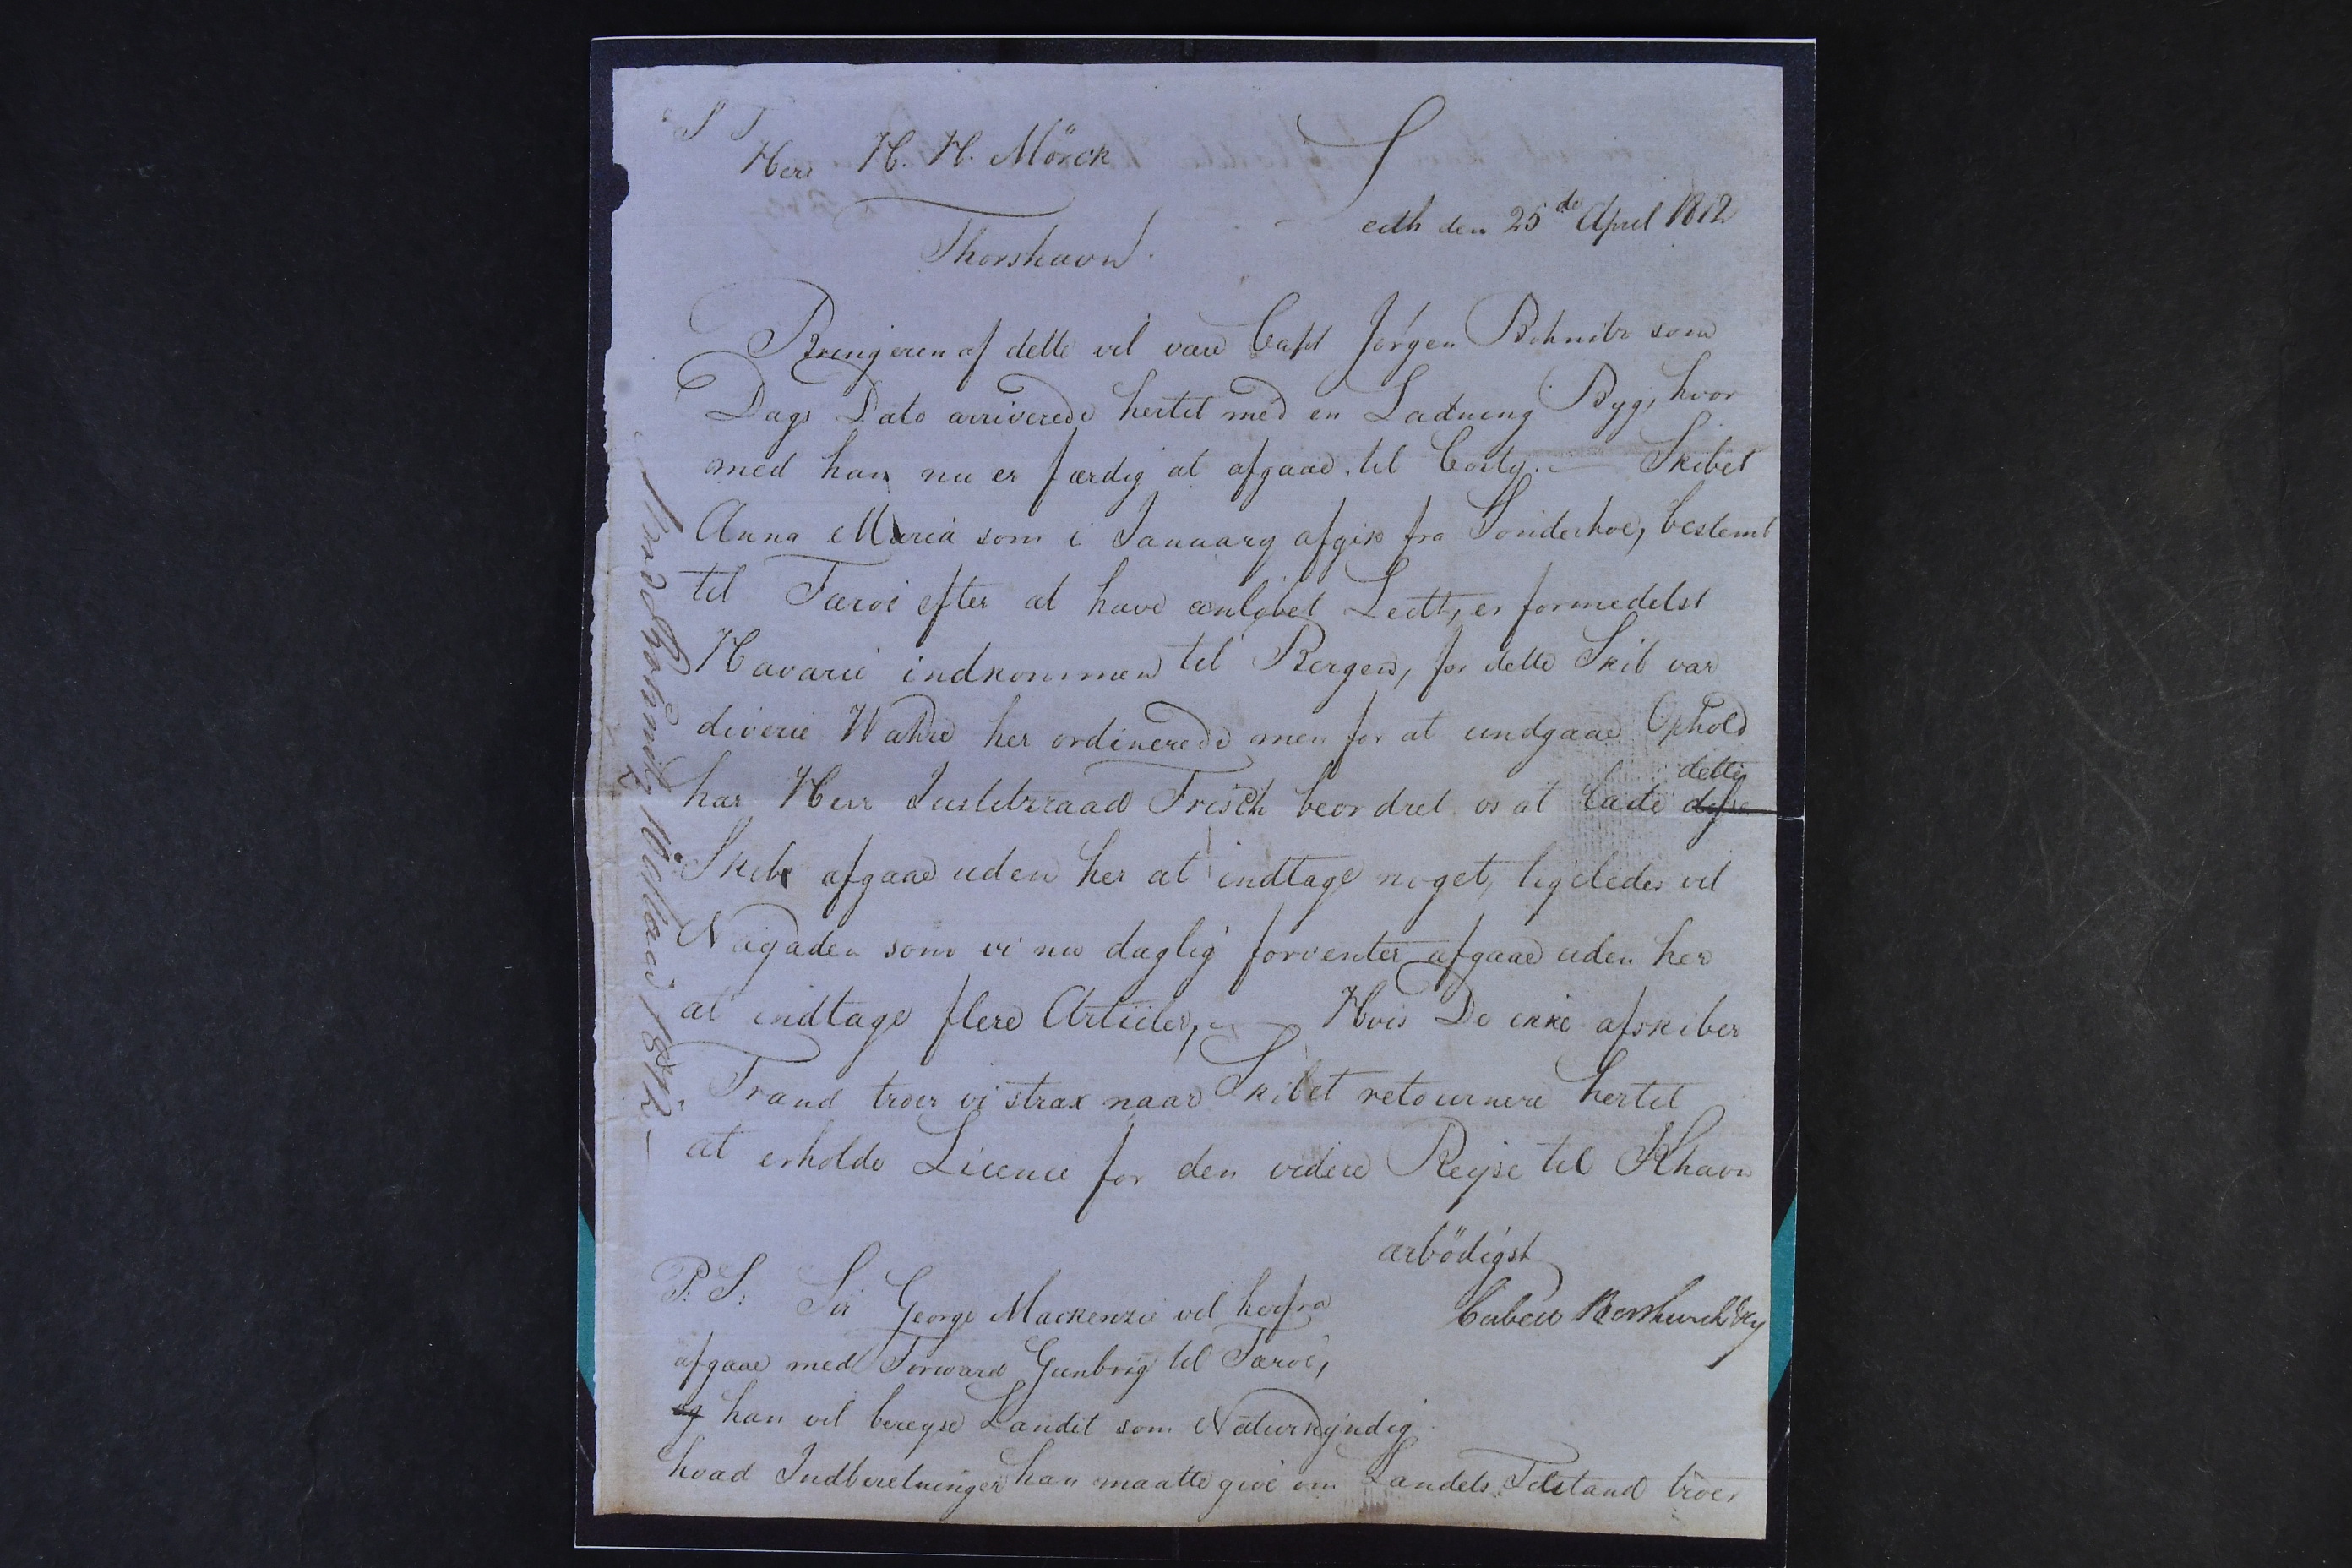 S T
Herr H. H. Mörck
Leith den 25de April 1812
Thorshavn.
Bringeren af dette vil være Capt Jørgen Bohnitz som
Dags Dato arriverede hertil med en Ladning Byg, hvor
med han nu er færdig at afgaae til Eder. — Skibet
Anna Maria som i January afgik fra Sønderhoe, bestemt
til Færøe efter at have anløbet Leith, er formedelst
Havarie indkommen til Bergen, for dette Skib var
diverse Wahre her ordinerede men for at undgaae Ophold
har Herr Justitzraad Frisch beordret os at lade dette
Skib afgaae uden her at indtage noget, ligeledes vil
Najaden som vi nu daglig forventer afgaae uden her
at indtage flere Articler, — Hvis De ikke afskiber
Trand troer vi strax naar Skibet retournere hertil
at erholde Licence for den videre Reyse til Khavn
ærbödigst
P: S: Sir George Mackenzie vil herfra
afgaae med Forward Gunbrig til Færöe,
og han vil bereyse Landet som Naturkyndig
hvad Indberetninger han maatte give om Landets Tilstand troer